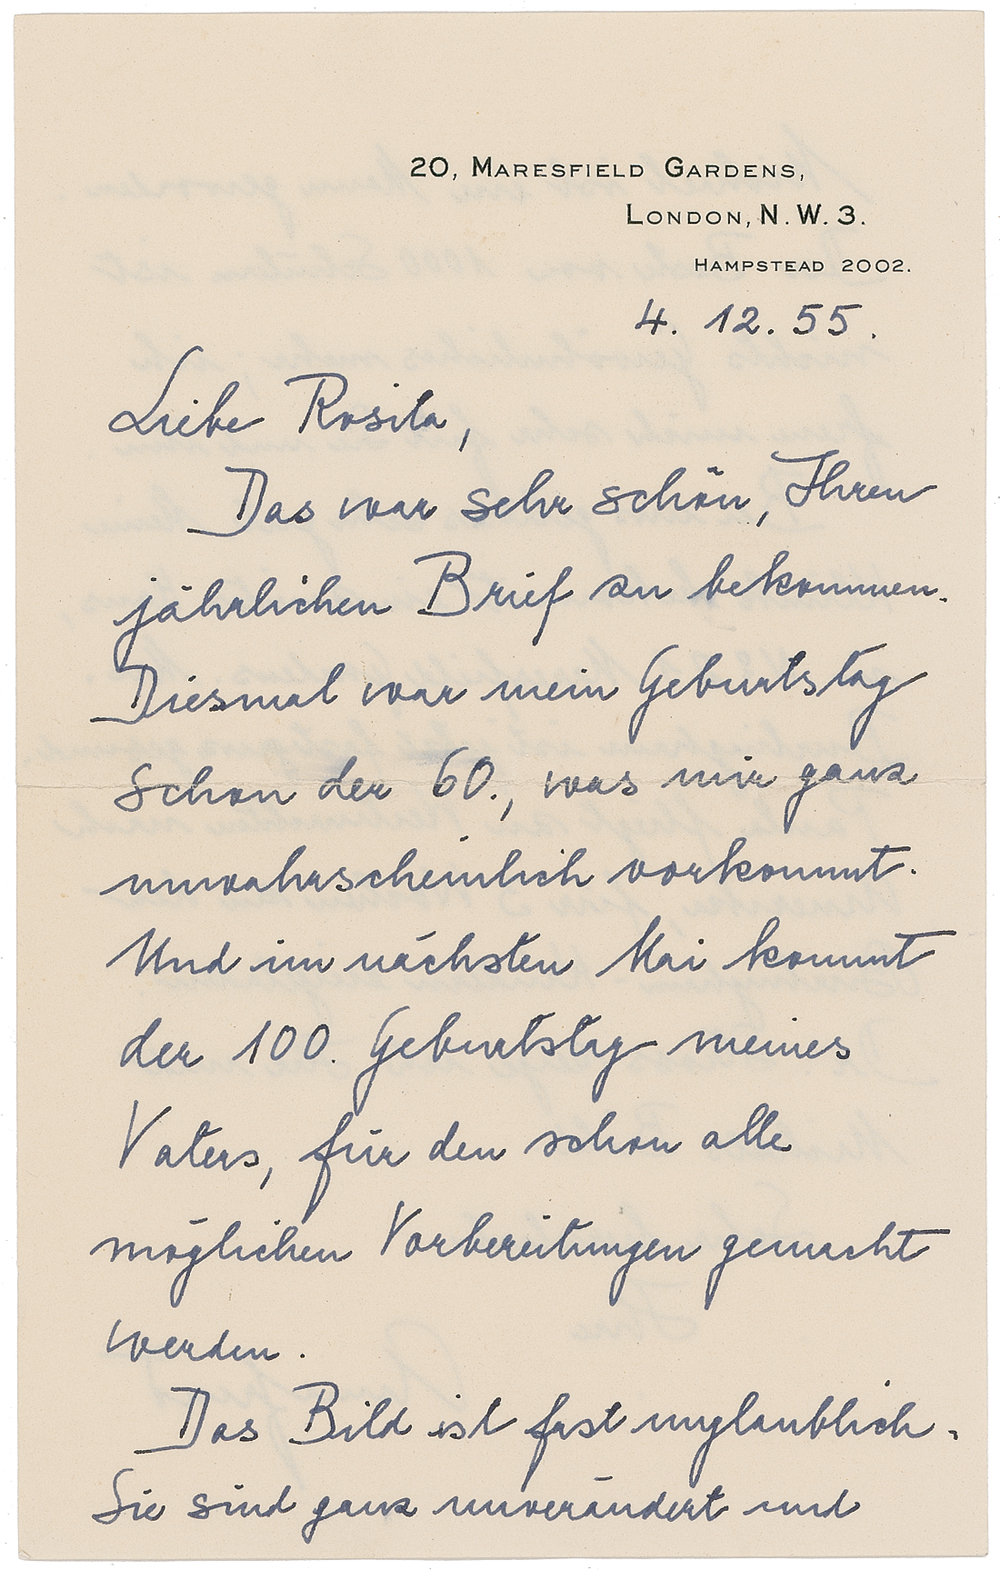 20, MARESFIELD GARDENS,
LONDON, N.W. 3.
HAMPSTEAD 2002.
4. 12. 55.
Liebe Rosita,
Das war sehr schön, Ihren
jährlichen Brief zu bekommen.
Diesmal war mein Geburtstag
schon der 60., was mir ganz
unwahrscheinlich vorkommt.
Und im nächsten Mai kommt
der 100. Geburtstag meines
Vaters, für den schon alle
möglichen Vorbereitungen gemacht
werden.
Das Bild ist fast unglaublich.
Sie sind ganz unverändert und